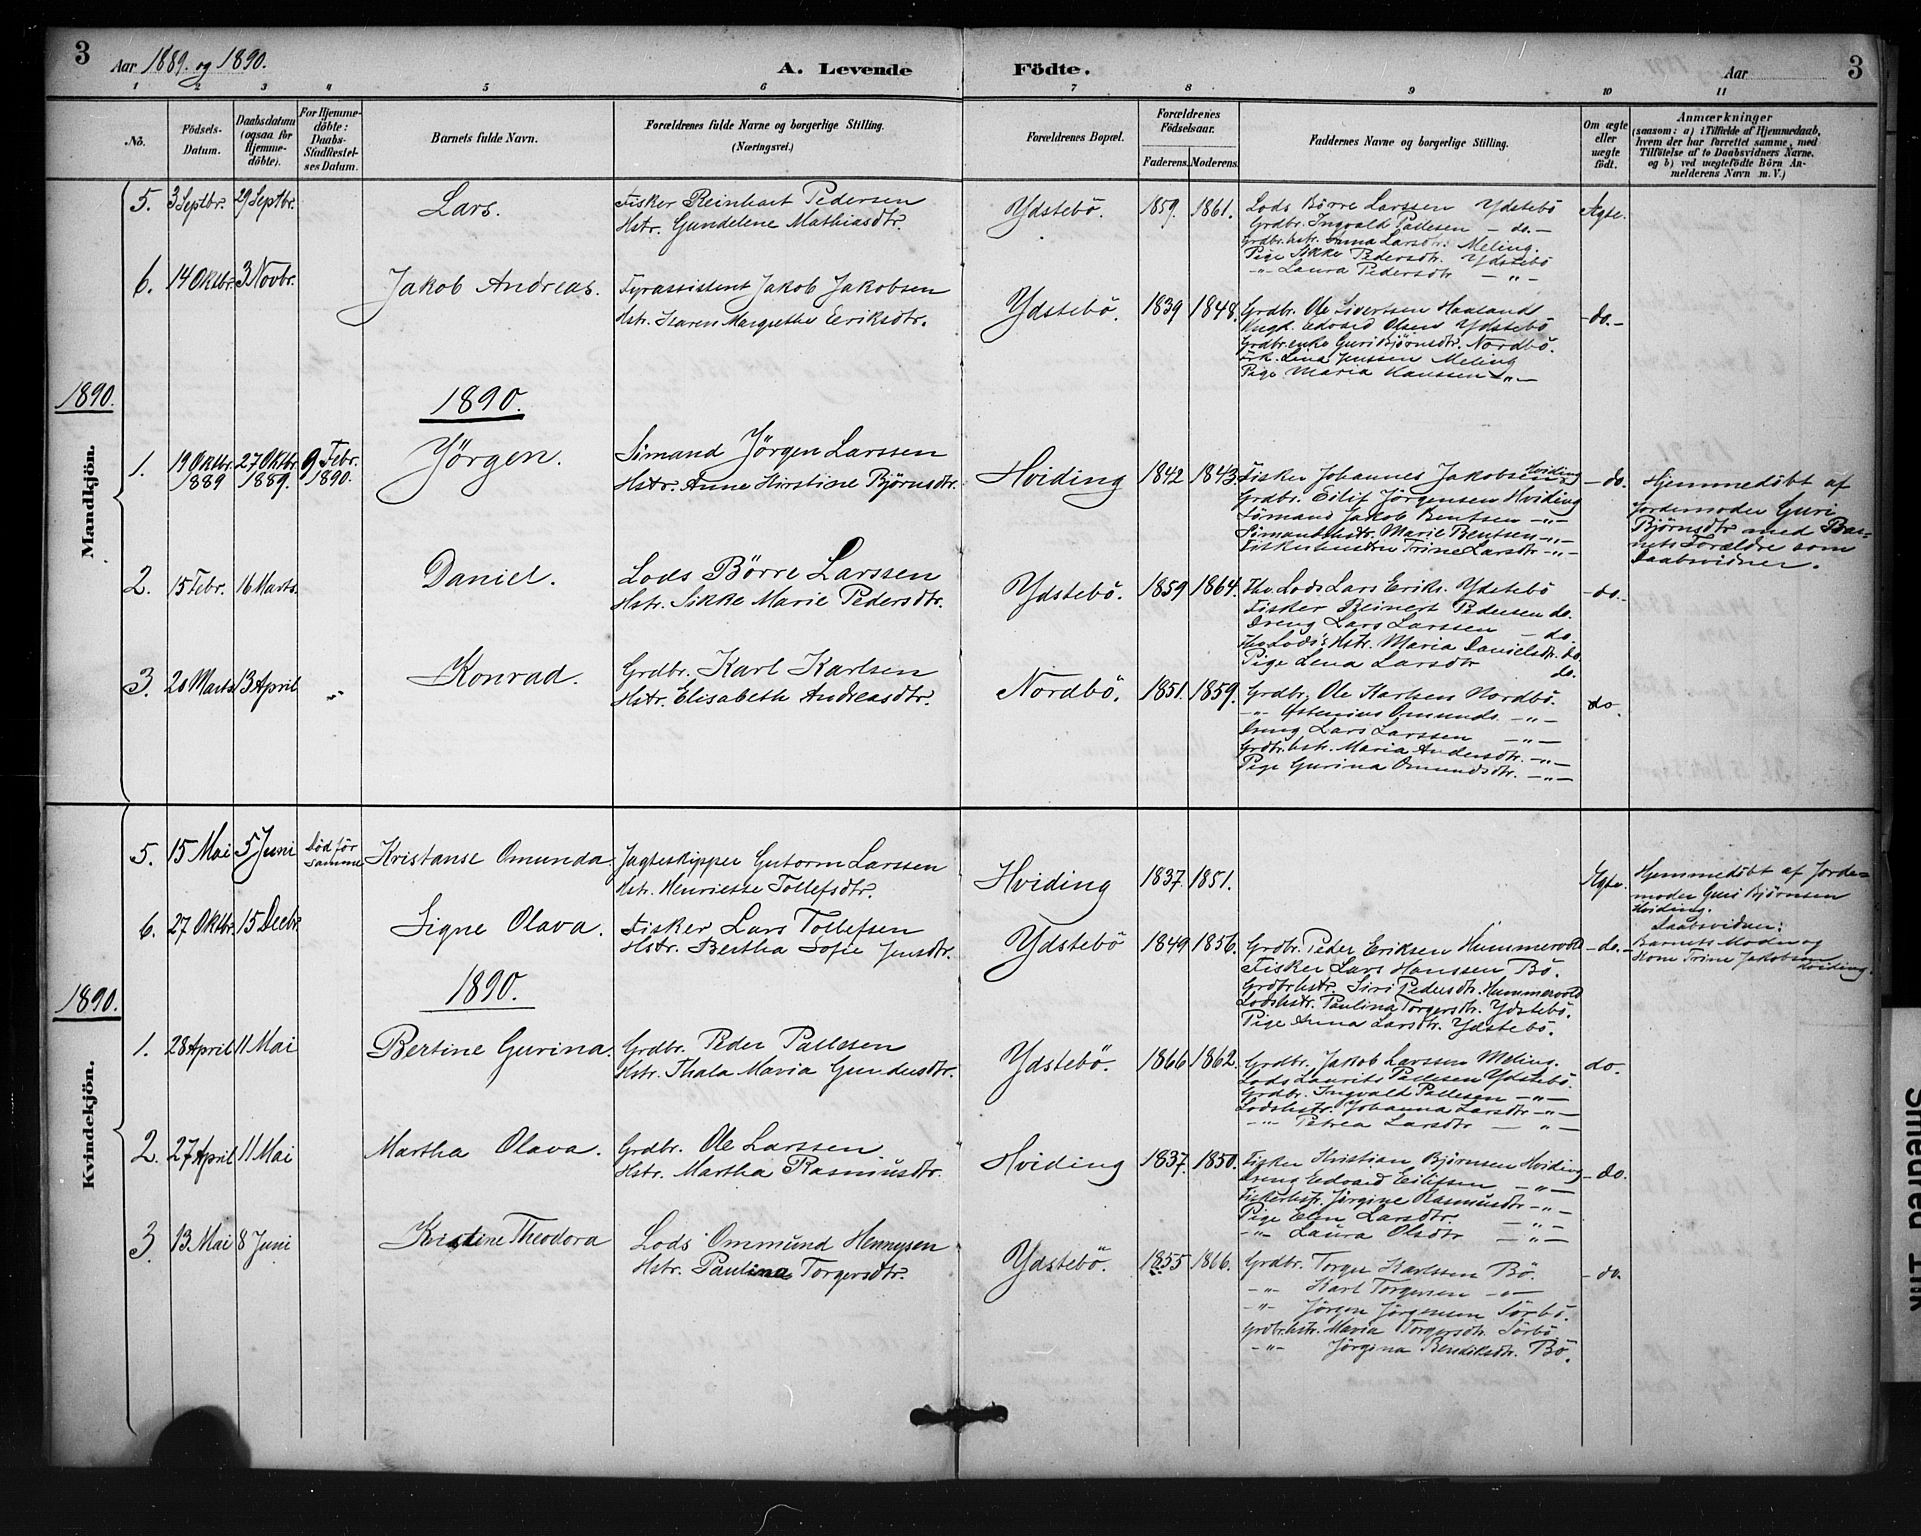 3 Aar 1889. og 1890. A. Levende Födte. Aar 3
1 2 3 4 5 6 7 8 9 10 11
No. Födsels-Datum. Daabsdatum (ogsaa for Hjemme-döbte). For Hjemme-döbte: Daabs-Stadfæstel-ses Datum. Barnets fulde Navn. Forældrenes fulde Navne og borgerlige Stilling. (Næringsvei.) Forældrenes Bopæl. Forældrenes Födselsaar. Faderens. Moderens. Faddernes Navne og borgerlige Stilling. Om ægte eller uægte födt. Anmærkninger (saasom: a) i Tilfælde af Hjemmedaab, hvem der har forrettet samme, med Tilföielse af to Daabsvidners Navne. og b) ved uægtefödte Börn An-melderens Navn m. V.)
5. 3 Septbr. 29 Septbr. Lars. Fisker Reinhart Pedersen
Hstr. Gundelene Mathiasdtr. Ydstebö. 1859. 1861. Lods Börre Larssen Ydstebö Ægte.
Grdbr. Ingvald Pallesen - do. -
Grdbr. hstr. Anna Larsdtr. Meling.
Pige Sikke Pedersdtr. Ydstebö
-"- Laura Pedersdtr - " -
6. 14 Oktbr. 3 Novbr. Jakob Andreas. Fyrassistent Jakob Jakobsen
Hstr. Karen Margrethe Eriksdtr. Ydstebö. 1839 1848. Grdbr. Ole Sivertsen Haaland - do. -
Ungk. Edvard Olsen Ydstebö
Grdbr. enke Guri Björnsdtr. Nordbö.
Lina Jenssen Meling
Pige Maria Hanssen - " -
1890. 1890.
Mandkjön.
1. 19 Oktbr. 1889 27 Oktbr. 1889. 9 Febr. 1890. Jörgen. Sömand Jörgen Larssen
Hstr. Anne Kirstine Björnsdtr. Hviding 1842 1843 Fisker Johannes Jakobsen Hviding - do.
Grdbr. Eilif Jörgensen Hviding
Sömand Jakob Bentsen - " -
Sömandshstr. Marie Bentsen - " -
Fiskerhustru Trine Larsdtr - " -
Hjemmedöbt af
Jordemoder Guri
Björnsdtr med Bar-
nets Forældre som
Daabsvidner.
2. 15 Febr. 16 Marts. Daniel. Lods Börre Larssen
Hstr. Sikke Marie Pedersdtr. Ydstebö. 1859 1864. Lods Lars Eriks. Ydstebö - do. -
Fisker Reinert Pedersen do.
Dreng Lars Larssen - do.
Lods's Hstr. Maria Danielsdtr. do.
Pige Lena Larsdtr do.
3. 20 Marts 13 April " Konrad. Grdbr. Karl Karlsen
Hstr. Elisabeth Andreasdtr. Nordbö. 1851. 1859. Grdbr. Ole Karlsen Nordbö. do.
-"- Omunds. - " -
Dreng Lars Larssen - " -
Grdbr. hstr. Maria Andersdtr. - " -
Pige Gurina Omundsdtr. - " -
5. 15 Mai 5 Juni Död för samme Kristanse Omunda Jagteskipper Gutorm Larssen
Hstr. Henriette Tollefsdtr. Hviding 1837. 1851. Ægte. Hjemmedöbt af Jorde-
moder Guri Björnsen
Hviding.
Daabsvidner:
Barnets Moder og
Kone Trine Jakobsen
Hviding.
6. 27 Oktbr. 15 Decbr. Signe Olava. Fisker Lars Tollefsen
Hstr. Bertha Sofie Jensdtr. Ydstebö 1849 1856. Grdbr. Peder Eriksen Hummervold - do. -
Fisker Lars Hanssen Bö.
Grdbrhstr. Siri Pedersdtr. Hummervold
Lodshstr. Paulina Torgersdtr. Ydstebö.
Pige Anna Larsdtr. Ydstebö.
1890. 1890.
Kvindekjön.
1. 28 April 11 Mai Bertine Gurina. Grdbr. Peder Pallesen
Hstr. Thala Maria Gundersdtr. Ydstebö. 1866 1862. Grdbr. Jakob Larssen Meling. do.
Lods Laurits Pallesen Ydstebö.
Grdbr. Ingvald Pallesen - " -
Lodshstr. Johanna Larsdtr - " -
-"- Petrea Larsdtr - " -
2. 27 April 11 Mai Martha Olava. Grdbr. Ole Larssen
Hstr. Martha Rasmusdtr. Hviding 1837. 1850. Fisker Kristian Björnsen Hviding - do.
Dreng Edvard Eilifsen - " -
Fiskerhstr. Jörgine Rasmusdtr - " -
Pige Elen Larsdtr. - " -
-"- Laura Olsdtr - " -
3. 13 Mai 8 Juni Kristine Theodora Lods Ommund Hennysen
Hstr. Paulina Torgersdtr. Ydstebö. 1855 1866. Grdbr. Torger Karlssen Bö. - do.
-"- Karl Torgersen - " -
-"- Jörgen Jörgensen Sörbö.
Grdbr. hstr. Maria Torgersdtr. Sörbö.
-"- Jörgina Bendiksdtr. Bö.